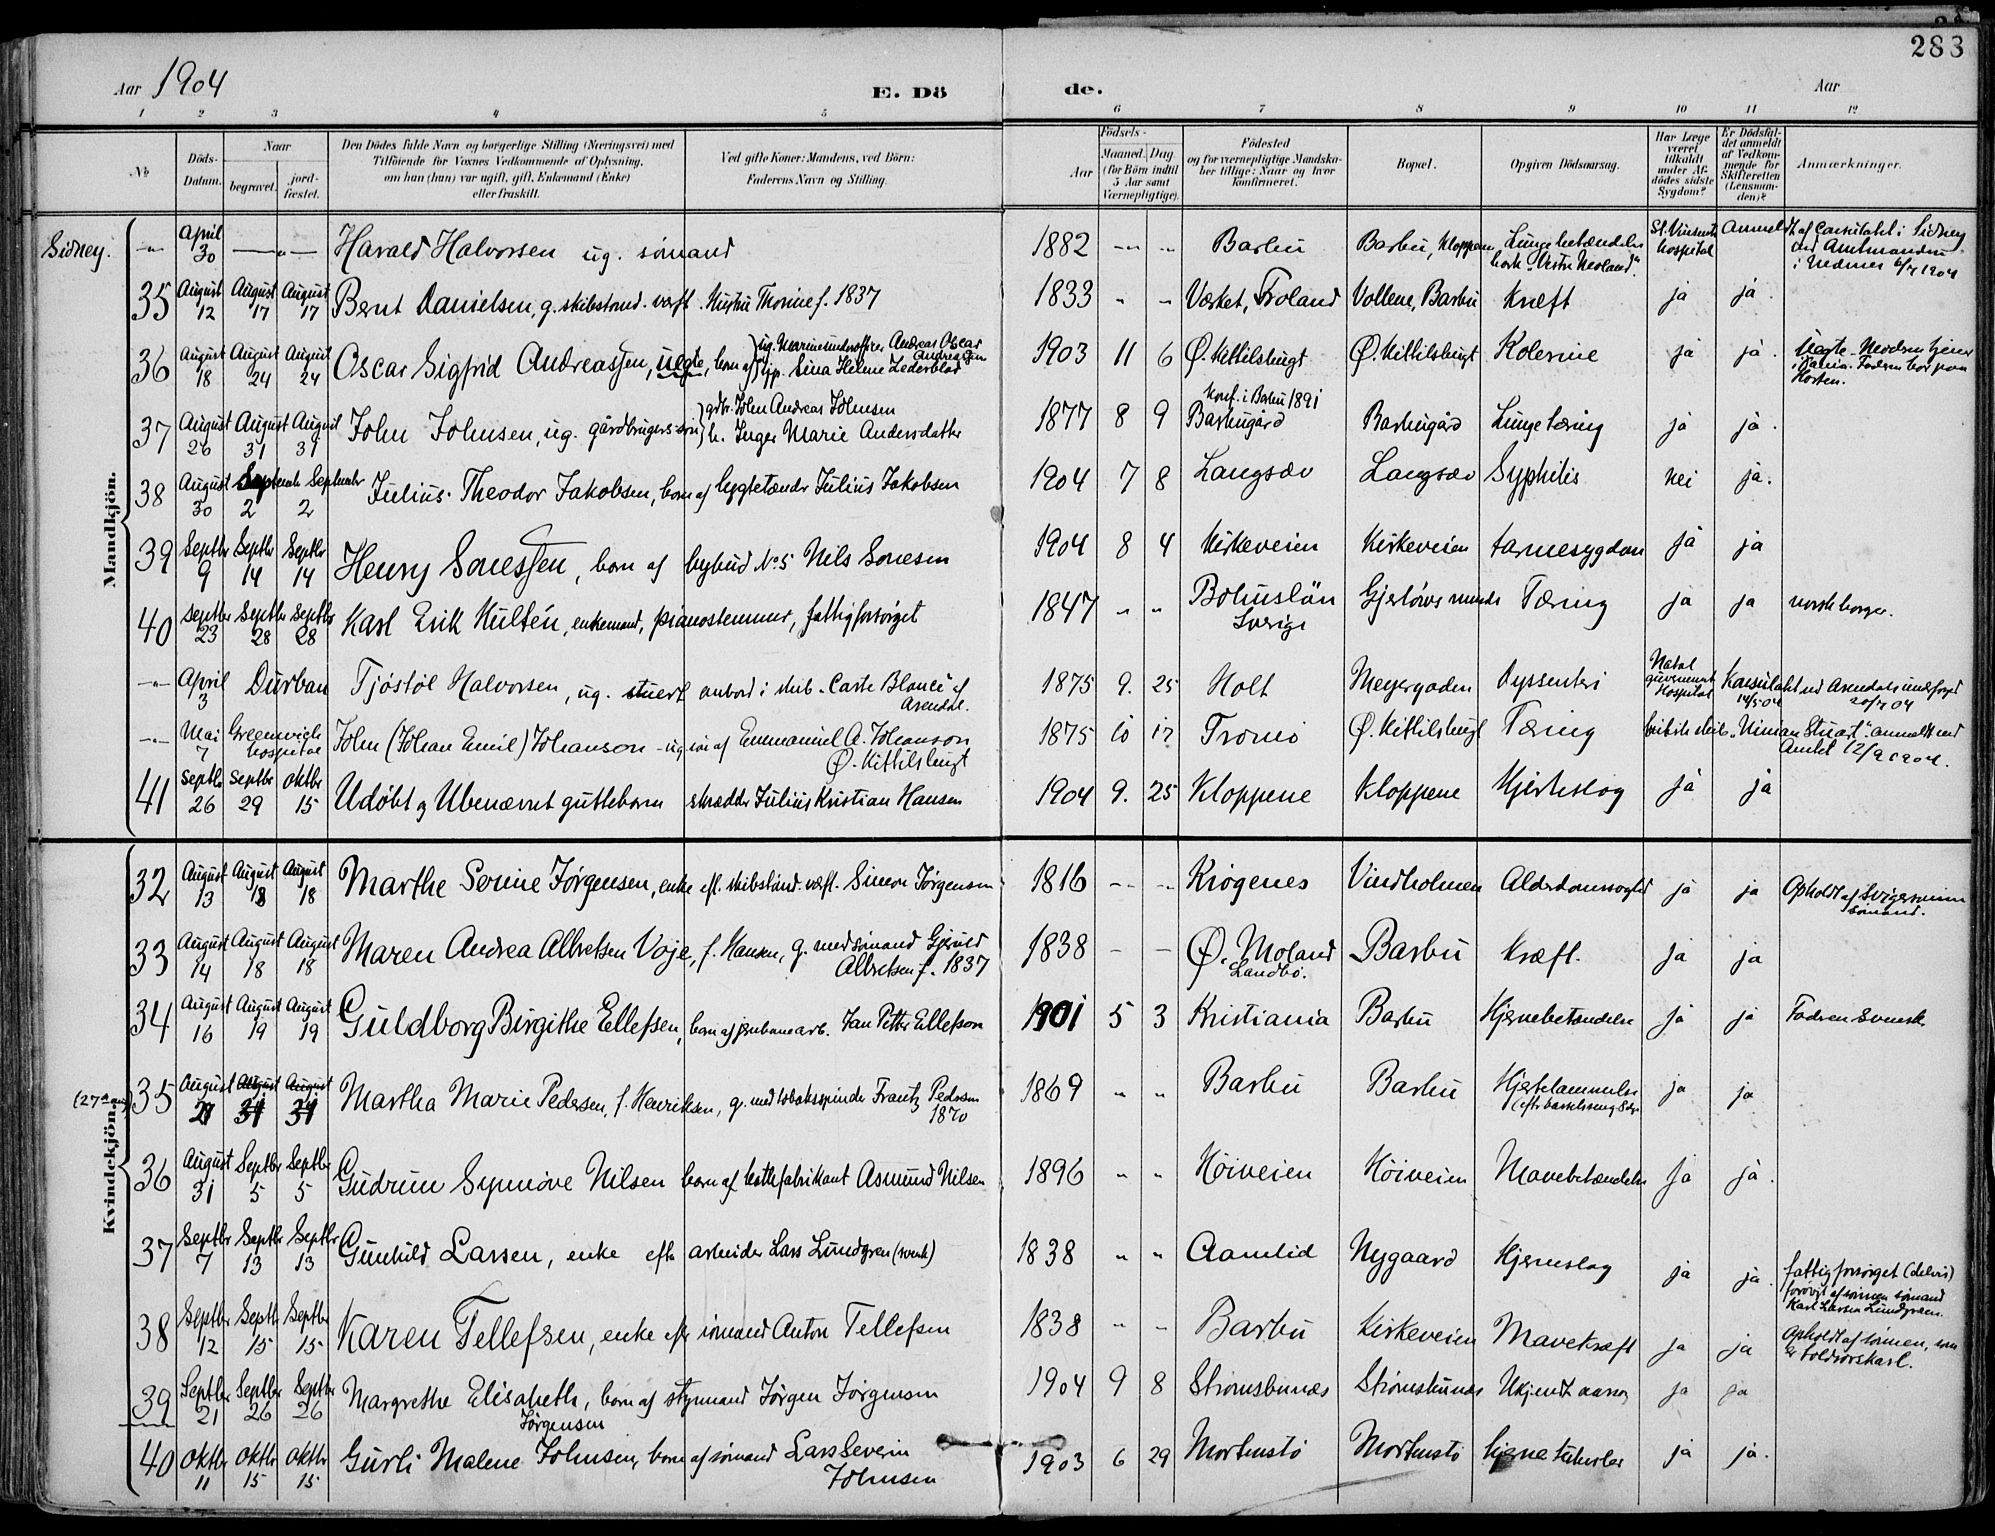 283
Aar 1904 E. Dö de. Aar
1 2 3 4 5 6 7 8 9 10 11 12
No
Döds-Datum.
Naar
begravet.
jord-fæstet.
Den Dödes fulde Navn og borgerlige Stilling (Næringsvei) med
Tilföiende for Voxnes Vedkommende af Oplysning,
om han (hun) var ugift, gift, Enkemand (Enke)
eller fraskilt.
Ved gifte Koner: Mandens, ved Börn:
Faderens Navn og Stilling.
Födsels-
Aar
Maaned. Dag
(for Börn indtil
5 Aar samt
Værnepligtige).
Födested
og for værnepligtige Mandska-
ber tillige: Naar og hvor
konfirmeret.
Bopæl.
Opgiven Dödsaarsag.
Har Læge
været
tilkaldt
under Af-
dödes sidste
Sygdom?
Er Dödsfal-
det anmeldt
af Vedkom-
mende for
Skifteretten
(Lensman-
den)?
Anmærkninger.
Mandkjön.
Sidney. -"- April 30 -"- Harald Halvorsen ug. sömand 1882 -"- " Barbu Barbu, Kloppene Lungebetændelse bark "Vestre Moland". St. Vinsents hospital Anmeldt af Consulatet i Sidney
ved Amtmanden
i Nedenes 6/7 1904
35 August 12 August 17 August 17 Bernt Danielsen, g. skibstömd. værft. Kirstine Thorine f. 1837 1833 " " Værket, Froland Vollene, Barbu Kræft ja ja.
36 August 18 August 24 August 24 Oscar Sigfrid Andreassen, uegte, barn af ug. Marineunderofficer Andreas Oscar Andreassen
pp. Sina Helene Zederblad 1903 11 6 Ø. Kittilsbugt Ø. Kittilsbugt Kolerine ja ja. Uægte. Moderen tjener
i Kania. Faderen bor paa
Horten.
37 August 26 August 31 August 31 John Johnsen, ug. gårdbrugerssön gdbr. John Andreas Johnsen
h. Inger Marie Andersdatter 1877 8 9 Konf. i Barbu 1891
Barbugård Barbugård Lungetæring ja ja.
38 August 30 September 2 September 2 Julius Theodor Jakobsen, barn af lygtetænder Julius Jakobsen 1904 7 8 Langsæv Langsæv Syphilis nei ja.
39 Septbr 9 Septbr 14 Septbr 14 Henry Sonessen, barn af bybud No 5 Nils Sonesen 1904 8 4 Kirkeveien Kirkeveien tarmesygdom ja ja
40 Septbr 23 Septbr 28 Septbr 28 Karl Erik Hultén, enkemand, pianostemmer, fattigforsörget 1847 " " Bohuslän
Sverige Gjerlöws minde Tæring ja ja norsk borger.
-"- April 3 Durban Tjöstöl Halvorsen, ug. stuert ombord i skib "Carte Blance" af
Arendal. 1875 9. 25 Holt Meyergaden Dyssenteri Natal
guvernement
Hospital Konsulatet 14/5 04 ved Arendals underfoged
20/7 04
-"- Mai 7 Greenwich
hospital John (Johan Emil) Johanson - ug sön af Emmanuel A. Johanson
Ø. Kittilsbugt 1875 10 17 Tromö Ø. Kittilsbugt Tæring britisk skib "Ninian Stuart". anmeldt ved
Amtet 12/9 1904.
41 Septbr 26 Septbr 29 oktbr 15 Udöbt og Ubenævnt guttebarn skrædder Julius Kristian Hansen 1904 9. 25 Kloppene Kloppene Hjerteslag ja ja
Kvindekjön.
32 August 13 August 18 August 18 Marthe Serine Jörgensen, enke eft. skibstömd. værft. Simon Jörgensen 1816 -"- " Krögenes Vindholmen Alderdomssvaghed ja ja Opholdt af Svigersönnen
sömand.
33 August 14 August 18 August 18 Maren Andrea Albretsen Voje, f. Hansen, g. med sömand Gjeruld
Albretsen f. 1837 1838 - - Ø. Moland
Landbö. Barbu Kræft. ja ja
34 August 16 August 19 August 19 Guldborg Birgithe Ellefsen, barn af jernbanearb. Jan Petter Ellefson 1901 5 3 Kristiania Barbu Hjernebetændelse ja ja Faderen Svensk
(27de aug) 35 August 27 August 31 August 31 Martha Marie Pedersen, f. Henriksen, g. med tobaksspinder Frantz Pedersen
1870 1869 " " Barbu Barbu Hjertelammelse
(efter barselseng ja ja
36 August 31 Septbr 5 Septbr 5 Gudrun Synnöve Nilsen barn af Asmund Nilsen 1896 " " Höiveien Höiveien Mavebetændelse ja ja.
37 Septbr 7 Septbr 13 Septbr 13 Gunhild Larsen, enke efter arbeider Lars Lundgren (svensk) 1838 " " Aamlid Nygaard Hjerneslag ja ja. fattigforsörget (delvis)
forövrigt af sönnen sömand
Karl Larsen Lundgreen.
38 Septbr 12 Septbr 15 Septbr 15 Karen Tellefsen, enke efter sömand Anton Tellefsen 1838 " " Barbu Kirkeveien Mavekræft ja ja Opholdt af sönnen, som
er toldrorskarl.
39 Septbr 21 Septbr 26 Septbr 26 Margrethe Elisabeth, barn af styrmand Jörgen Jörgensen
Jörgensen 1904 9 8 Strömsbunæs Strömsbunæs Ukjendt aarsag ja ja
40 Oktbr 11 oktbr 15 oktbr 15 Gurli Malene Johnsen, barn af sömand Lars Severin
Johnsen 1903 6 29 Mortenstö Mortenstö hjerne tuberkler ja ja.